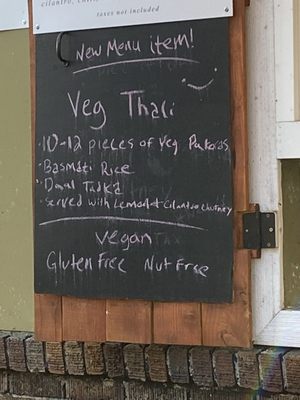 cilantro,
taxes not included
New Menu item!
Veg Thali
·10-12 pieces of Veg Pakoras
·Basmati Rice
·Daal Tadka
·Served with Lemon & Cilantro Chutney
vegan
Gluten Free Nut Free